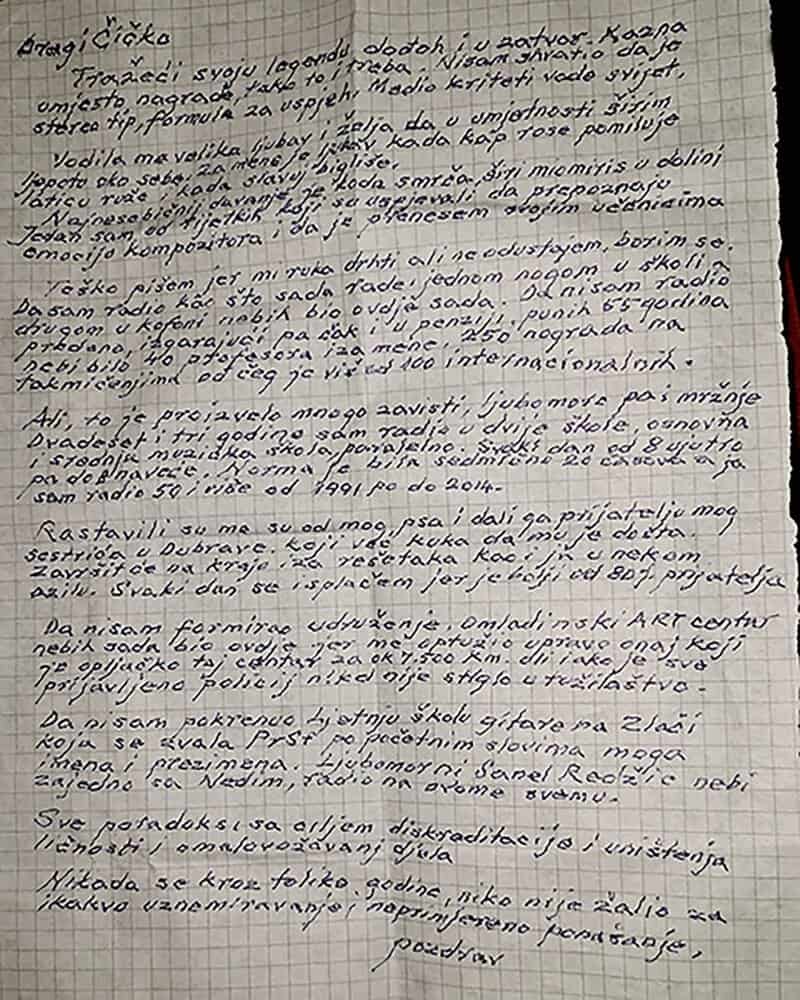 Dragi Čičko
Tražeći svoju legendu, dođoh i u zatvor. Kazna
umjesto nagrade, tako to i treba. Nisam shvatio da je
stereo tip, formula za uspjeh. Medio kriteti vode svijet,
Vodila me velika ljubav i želja da u umjetnosti širim
ljepotu oko sebe. Za mene je ljubav kada kap rose pomiluje
laticu ruže i kada slavuj bigliše.
Najnesebičnij davanje je kada smrča, širi miomiris u dolini
Jedan sam od rijetkih koji su uspjevali da prepoznaju
emociju kompozitora i da je prenesem svojim učenicima
Teško pišem jer mi ruka drhti ali ne odustajem, borim se.
Da sam radio kao što sada rade, jednom nogom u školi a
drugom u kafani nebih bio ovdje sada. Da nisam radio
predano, izgarajući pa čak i u penziji, punih 55 godina
nebi bilo 40 profesora iza mene, 250 nagrada na
takmičenjima od čeg je više od 100 internacionalnih.
Ali, to je proizvelo mnogo zavisti, ljubomore pa i mržnje
Dvadeset i tri godine sam radio u dvije škole, osnovna
i srednja muzička škola paralelno. Svaki dan od 8 ujutro
pa do 8 naveče. Norma je bila sedmično 20 časova a ja
sam radio 50 i više od 1991 pa do 2014.
Rastavili su me su od mog psa i dali ga prijatelju mog
sestrića u Dubrave. koji već kuka da mu je dosta.
Završit će na kraju iza rešetaka kao i ja u nekom
azilu. Svaki dan se isplačem jer je bolji od 80% prijatelja
Da nisam formirao udruženje, Omladinski ART centar
nebih sada bio ovdje jer me optužio upravo onaj koji
je opljačko taj centar za ok 7.500 Km. ali iako je sve
prijavljeno policij nikad nije stiglo u tužilaštvo.
Da nisam pokrenuo Ljetnju školu gitare na Zlači
koja se zvala PrSt po početnim slovima moga
imena i prezimena. Ljubomorni Sanel Redžić nebi
zajedno sa Nedim, radio na ovome svemu.
Sve paradoksi sa ciljem diskraditacije i uništenja
ličnosti i omalovožavanj djela
Nikada se kroz toliko godine, niko nije žalio za
ikakvo uznemiravanje i neprimjereno ponašanje,
pozdrav